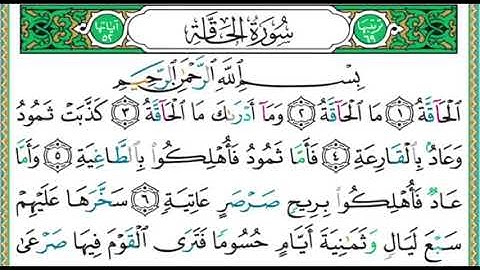 ترتيبها ٦٩ سُورَةُ الحَاقَّة آياتها ٥٢
بِسْمِ اللَّهِ الرَّحْمَٰنِ الرَّحِيمِ
الْحَاقَّةُ ۝١ مَا الْحَاقَّةُ ۝٢ وَمَا أَدْرَىٰكَ مَا الْحَاقَّةُ ۝٣ كَذَّبَتْ ثَمُودُ
وَعَادٌ بِالْقَارِعَةِ ۝٤ فَأَمَّا ثَمُودُ فَأُهْلِكُوا بِالطَّاغِيَةِ ۝٥ وَأَمَّا
عَادٌ فَأُهْلِكُوا بِرِيحٍ صَرْصَرٍ عَاتِيَةٍ ۝٦ سَخَّرَهَا عَلَيْهِمْ
سَبْعَ لَيَالٍ وَثَمَٰنِيَةَ أَيَّامٍ حُسُومًا فَتَرَى الْقَوْمَ فِيهَا صَرْعَىٰ